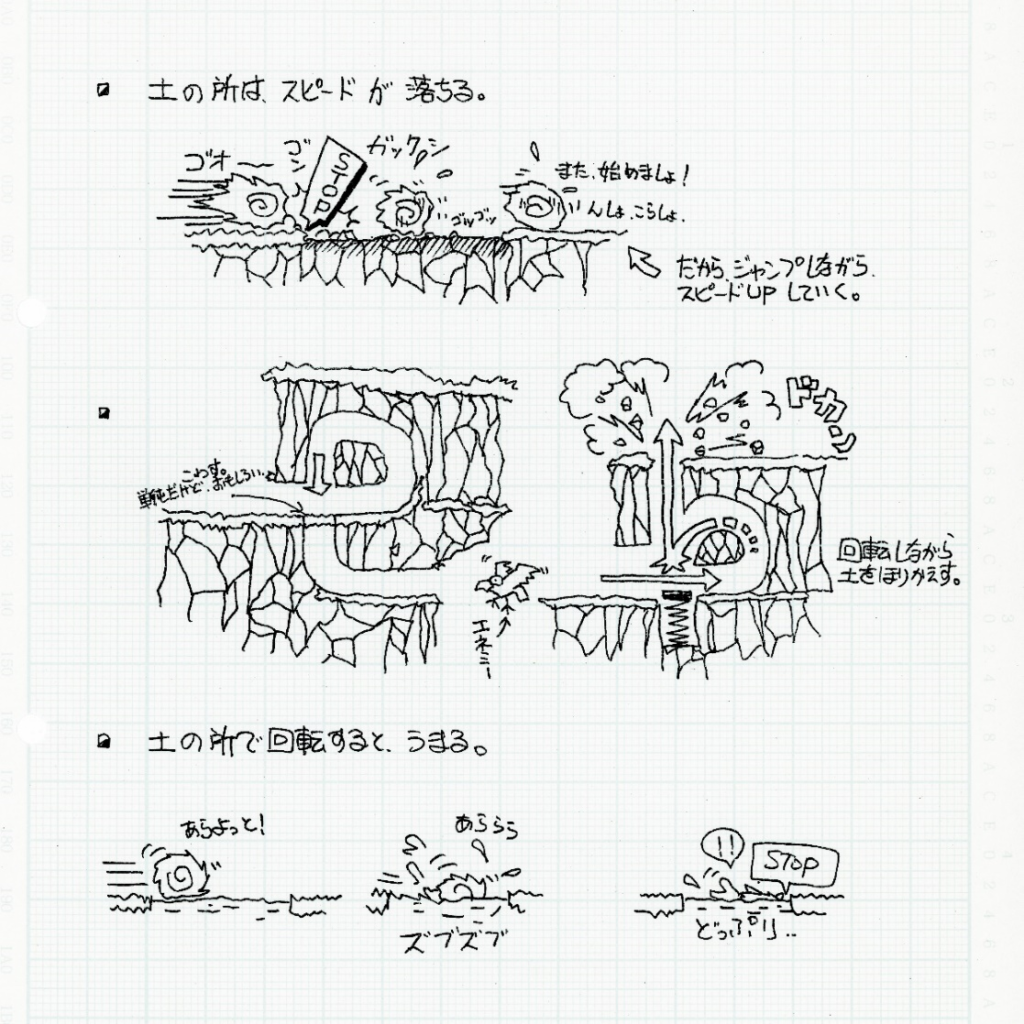 土の所は、スピードが落ちる。
ゴオー
ゴン
STOP
ガックシ
ゴッゴッ
また、始めましょ!
んしょ、こらしょ。
だから、ジャンプしながら、
スピードUPしていく。
こわす。
単純だけど、おもしろい。
エネミー
ドカン
回転しながら
土をほりかえす。
土の所で回転すると、うまる。
あらよっと!
あららら
ズブズブ
!!
STOP
どっぷり..